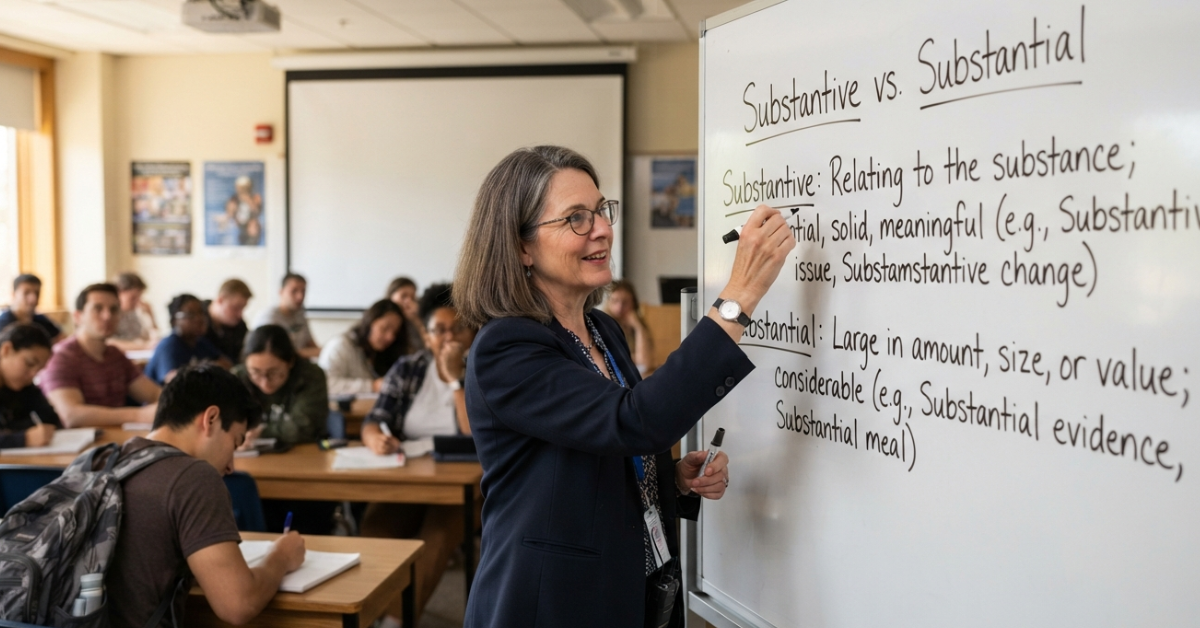 Substantive vs. Substantial
Substantive: Relating to the substance;
tial, solid, meaningful (e.g., Substantiv
issue, Substamstantive change)
ubstantial: Large in amount, size, or value;
considerable (e.g., Substantial evidence,
Substantial meal)